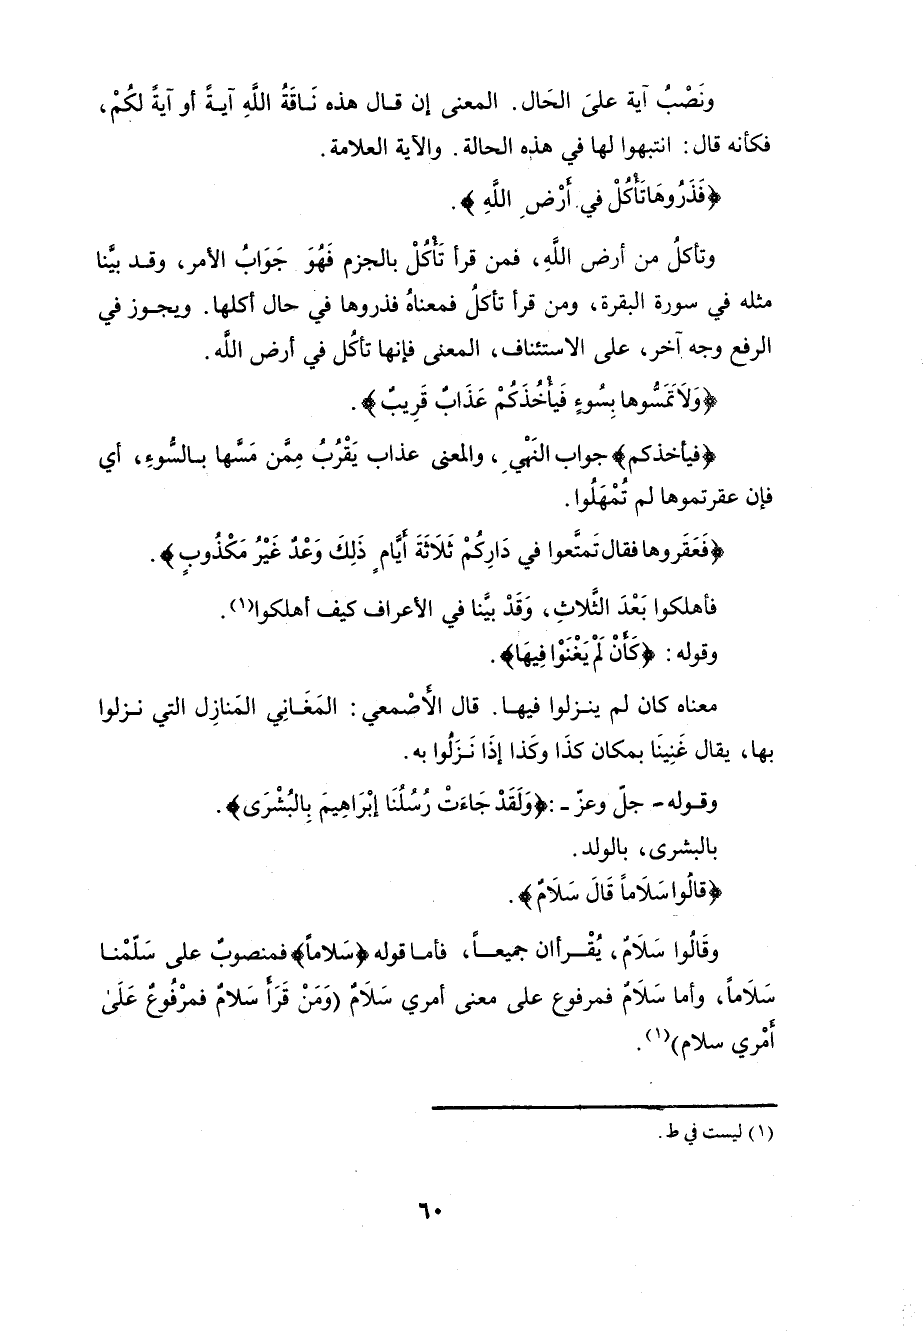 ونَصْبُ آية على الحَال. المعنى إن قال هذه نَاقَةُ اللَّهِ آيةً أو آيةً لكُمْ،
فكأنه قال: انتبهوا لها في هذه الحالة. والآية العلامة.
﴿فَذَرُوهَا تَأْكُلْ فِي أَرْضِ اللَّهِ﴾.
وتأكلُ من أرض اللَّهِ، فمن قرأ تَأْكُلْ بالجزم فَهُوَ جَوَابُ الأمر، وقد بيَّنا
مثله في سورة البقرة، ومن قرأ تأكلُ فمعناهُ فذروها في حال أكلها. ويجوز في
الرفع وجه آخر، على الاستئناف، المعنى فإنها تأكُل في أرض اللَّه.
﴿وَلَا تَمَسُّوها بِسُوءٍ فَيَأْخُذَكُمْ عَذَابٌ قَرِيبٌ﴾.
﴿فيأخذكم﴾ جواب النَهْيِ، والمعنى عذاب يَقْرُبُ مِمَّن مَسَّها بالسُّوءِ، أي
فإن عقرتموها لم تُمْهَلُوا.
﴿فَعَقَروها فقال تَمتَّعوا في دَارِكُمْ ثَلَاثَةَ أَيَّامٍ ذَلِكَ وَعْدٌ غَيْرُ مَكْذُوبٍ﴾.
فأهلكوا بَعْدَ الثَّلاثِ، وَقَدْ بيَّنا في الأعراف كيف أهلكوا(١).
وقوله: ﴿كَأَنْ لَمْ يَغْنَوْا فِيهَا﴾.
معناه كان لم ينزلوا فيها. قال الأَصْمعي: المَغَاني المَنازِل التي نزلوا
بها، يقال غَنِينَا بمكان كذَا وكَذا إذَا نَزَلُوا به.
وقوله - جلّ وعزّ -: ﴿وَلَقَدْ جَاءَتْ رُسُلُنَا إبْرَاهِيمَ بِالبُشْرَى﴾.
بالبشرى، بالولد.
﴿قالُوا سَلَاماً قَالَ سَلَامٌ﴾.
وقَالُوا سَلَامٌ، يُقْرأان جميعاً، فأما قوله ﴿سَلاماً﴾ فمنصوبٌ على سَلَّمْنا
سَلَاماً، وأما سَلَامٌ فمرفوع على معنى أمري سَلَامٌ (وَمَنْ قَرَأَ سَلامٌ فمرْفُوعٌ عَلَىٰ
أَمْرِي سلام)(١).
(١) ليست في ط.
٦٠